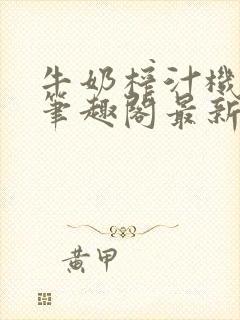 牛奶榨汁機
筆趣閣最新
黃甲